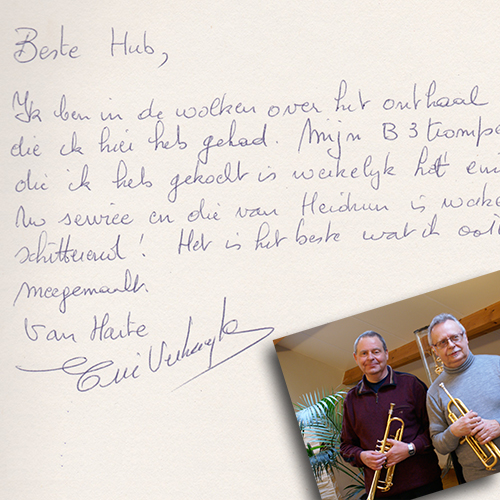 Beste Hub,
Ik ben in de wolken over het onthaal
die ik hier heb gehad. Mijn B 3 trompe
die ik heb gekocht is werkelijk het ein
Uw service en die van Heidrun is werke
schitterend! Het is het beste wat ik ooit
meegemaakt.
Van Harte